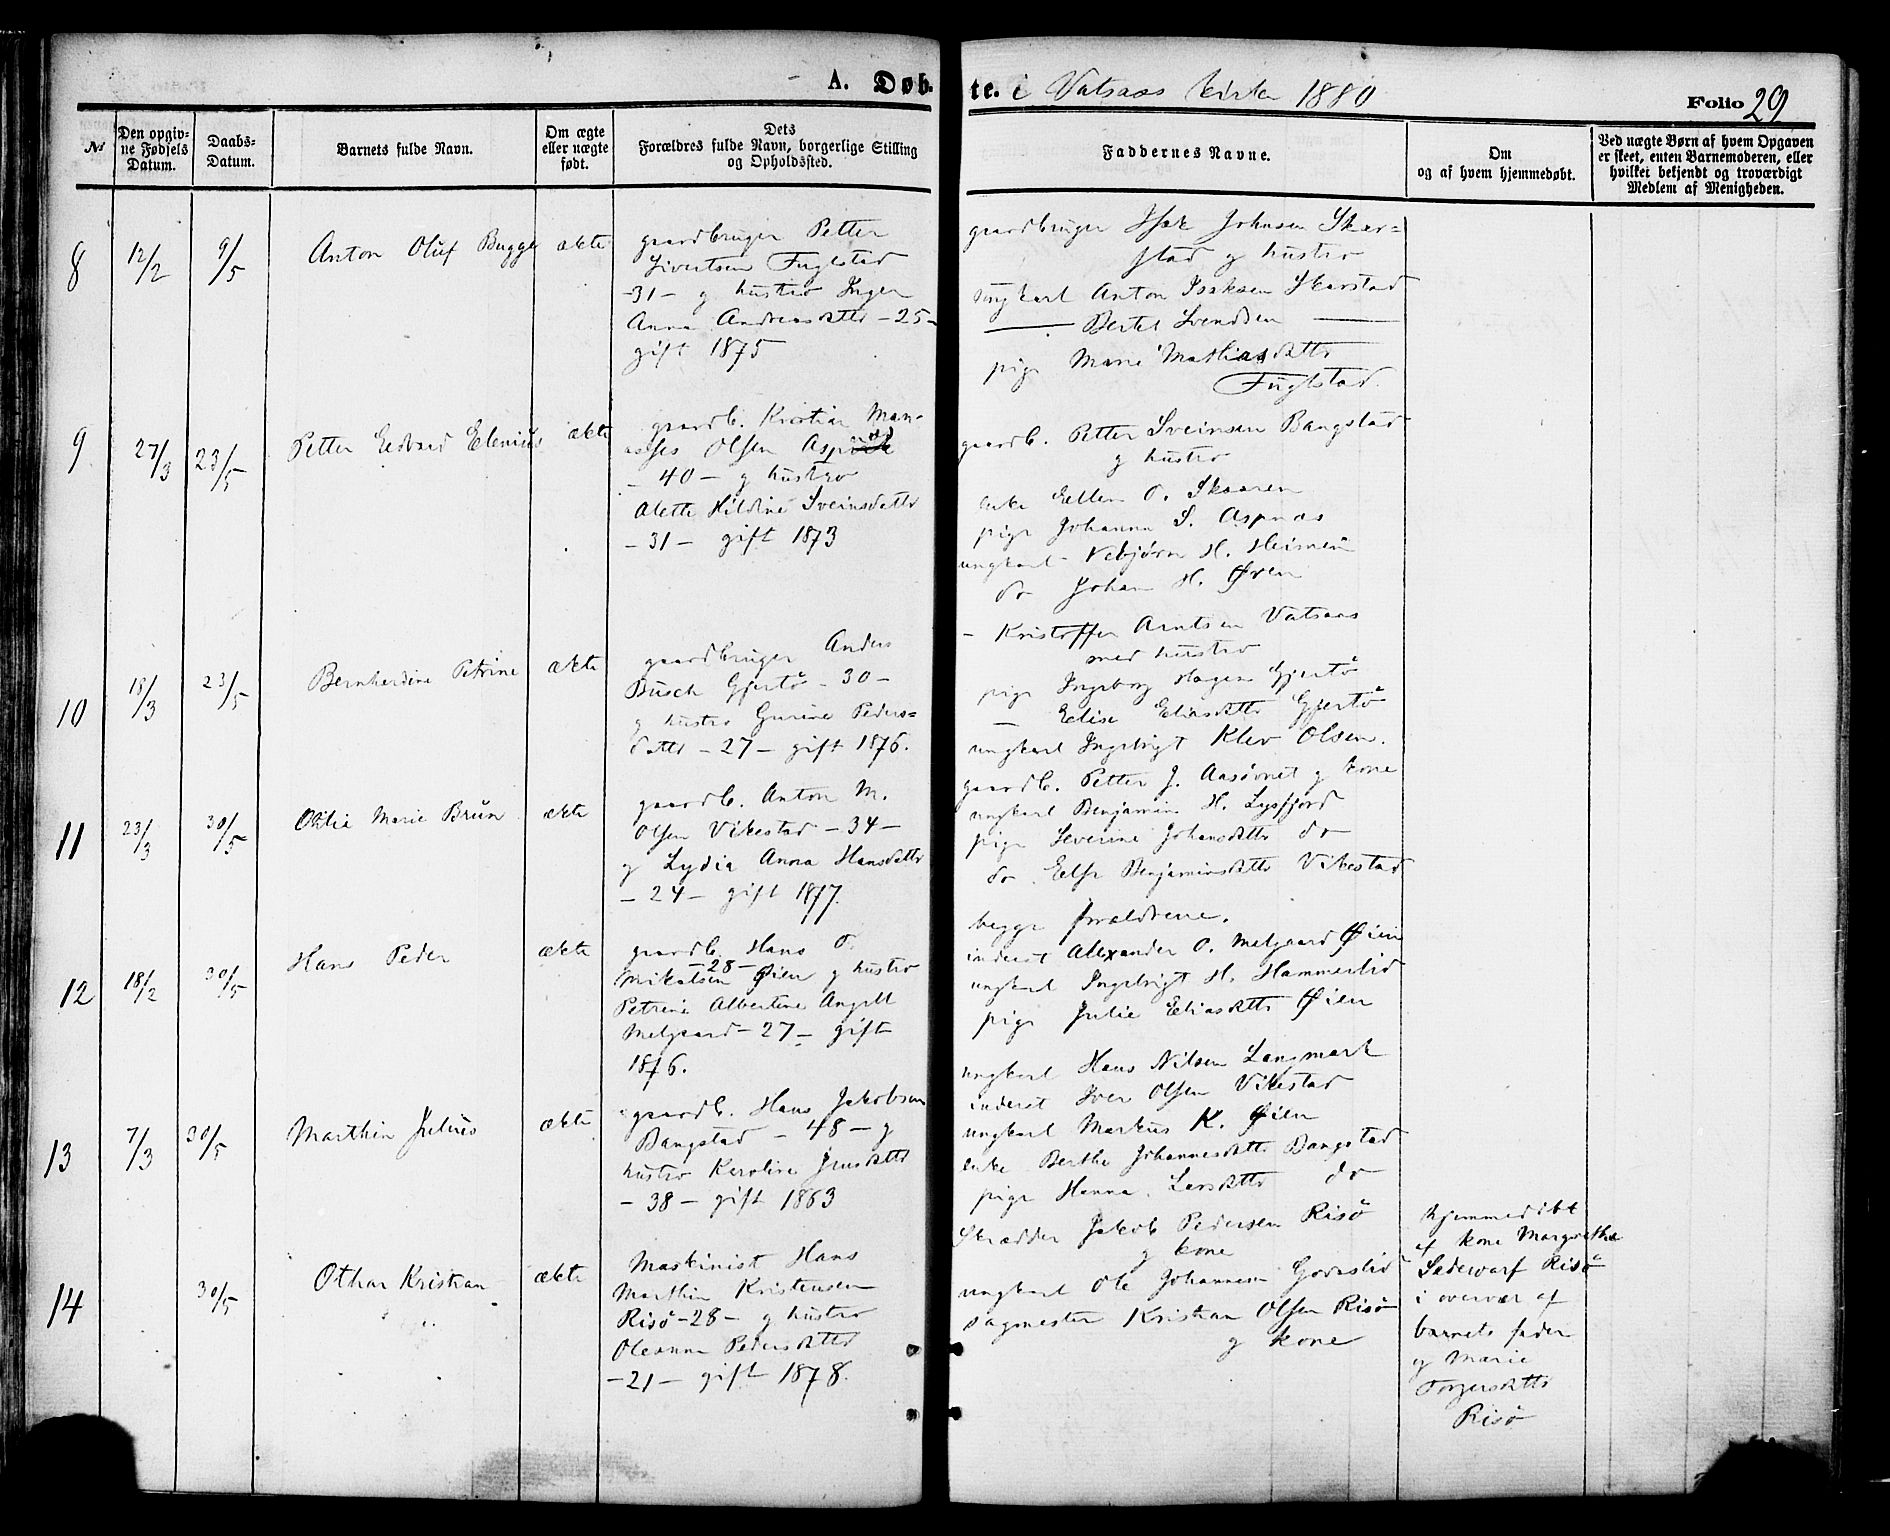 A. Døb-
te. i Vatsaas kirke 1880
Folio 29
No
Den opgiv-
ne Fødsels
Datum.
Daabs-
Datum.
Barnets fulde Navn.
Om ægte
eller uægte
født.
Dets
Forældres fulde Navn, borgerlige Stilling
og Opholdssted.
Faddernes Navne.
Om
og af hvem hjemmedøbt.
Ved uægte Børn af hvem Opgaven
er skeet, enten Barnemoderen, eller
hvilket bekjendt og troværdigt
Medlem af Menigheden.
8
12/2
9/5
Anton Oluf Bugge
ækte
gaardbruger Petter
Sivertsen Fuglstad
-31- og hustro Inger
Anna Andreasdattr -25-
gift 1875
gaardbruger Isak Johnsen Skar=
stad og hustro
ungkarl Anton Isaksen Skarstad
— Bertel Svendsen —
pige Marie Mathiasdattr
Fuglstad.
9
27/3
23/5
Petter Edvard Elenius
ækte
gaardb. Kristian Man-
asses Olsen Aspnæs
- 40 - og hustro
Alette Hildine Sveinsdattr
- 31 - gift 1873
gaardb. Petter Sveinsen Bangstad
og hustro
enke Ellen O. Skaaren
pige Johanna S. Aspnæs
ungkarl Vebjørn H.
do Johan H. Øren
10
18/3
23/5
Bernhardine Petrine
ækte
gaardbruger Anders
Busch Gjertö - 30 -
og hustro Gurine Peders=
dattr - 27 - gift 1876.
- Kristoffer Arntsen Vatsaas
med hustro
pige Ingeborg Hagen Gjertö
— Elise Eliasdattr Gjertö
ungkarl Ingebrigt Klev Olsen.
11
23/3
30/5
Otilie Marie Brun
ækte
gaardb. Anton M.
Olsen Vikestad - 34 -
og Lydia Anna Hansdattr
- 24 - gift 1877.
gaardb. Petter J. Aasövnet og kone
ungkarl Benjamin H. Lysfjord
pige Severine Johansdattr do
do Else Benjaminsdattr Vikestad
begge forældrene.
12
18/2
30/5
Hans Peder
ækte
gaardb. Hans O.
- 28 -
Mikalsen Øien og hustro
Petrine Albertine Angell
Melgaard - 27 - gift
1876.
inderst Alexander O. Melgaard Øien
ungkarl Ingebrigt H. Hammerlid
pige Julie Eliasdattr Øien
13
7/3
30/5
Marthin Julius
ækte
gaardb. Hans Jakobsen
Bangstad - 48 - og
hustro Karoline Jensdattr
- 38 - gift 1863
ungkarl Hans Nilsen Langmark
inderst Iver Olsen Vikestad
ungkarl Markus K. Øien
enke Berthe Johannesdattr Bangstad
pige Hanna Larsdattr do
14
30/5
Othar Kristian
ækte
Maskinist Hans
Marthin Kristensen
Risö - 28 - og hustro
Oleanna Pedersdattr
- 21 - gift 1878.
Skrædder Jakob Pedersen Risö
og kone
ungkarl Ole Johannesen Godeslid
sagmester Kristian Olsen Risö
og kone
hjemmedöbt
af kone Margrethe
Sedewarf Risö
i overvær af
barnets fader
og Marie
Torgersdattr
Risö